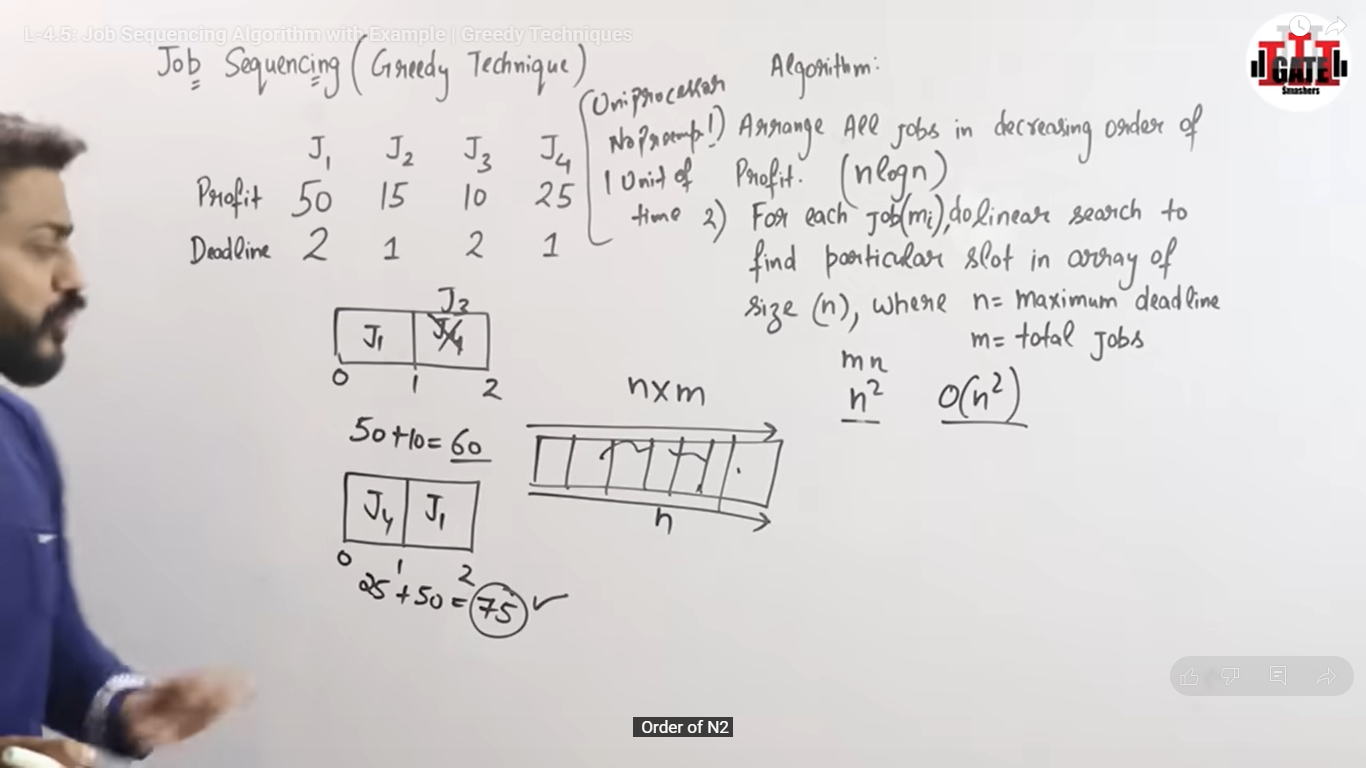 L-4.5: Job Sequencing Algorithm with Example | Greedy Techniques
Job Sequencing (Greedy Technique)
J1 J2 J3 J4
Profit 50 15 10 25
Deadline 2 1 2 1
(Uniprocessor
No Preemp!
1 Unit of
time
Algorithm:
1) Arrange All jobs in decreasing order of
Profit. (nlogn)
2) For each job(mi), do linear search to
find particular slot in array of
size (n), where n= maximum deadline
m= total jobs
mn
n² O(n²)
J3
J1 J4
0 1 2
50+10= 60
J4 J1
0 1 2
25+50=75 ✓
n×m
n
GATE
Smashers
Order of N2